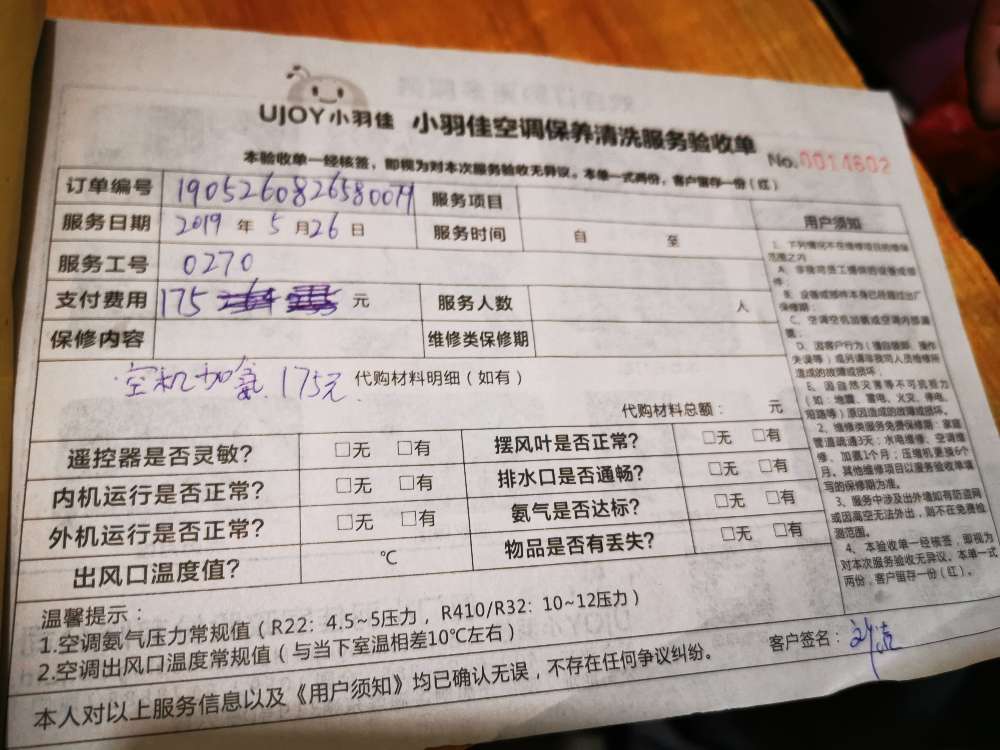 UJOY小羽佳 小羽佳空调保养清洗服务验收单
No.0014602
本验收单一经核签，即视为对本次服务验收无异议。本单一式两份，客户留存一份（红）
订单编号 服务项目
服务日期 2019 年 5 月 26 日 服务时间 自 至
服务工号 0270
支付费用 175 元 服务人数 人
保修内容 维修类保修期
175元 代购材料明细（如有）
代购材料总额： 元
遥控器是否灵敏？ □无 □有 摆风叶是否正常？ □无 □有
内机运行是否正常？ □无 □有 排水口是否通畅？ □无 □有
外机运行是否正常？ □无 □有 氨气是否达标？ □无 □有
出风口温度值？ ℃ 物品是否有丢失？ □无 □有
用户须知
1、下列情况不在维修项目的维保
范围之内
A、非我司员工提供的设备或维
修；
B、设备或部件本身已经超过出厂
保修期；
C、空调空机加氨或空调内部漏
氨。
D、因客户行为（擅自拆卸、操作
失误等）或另请非我司人员维修所
造成的故障或损坏；
E、因自然灾害等不可抗拒力
（如：地震、雷电、火灾、停电、
短路等）原因造成的故障或损坏。
2、维修类服务免费保修期：家庭
管道疏通3天；水电维修、空调维
修、加氨1个月；压缩机更换6个
月。其他维修项目以服务验收单填
写的保修期为准。
3、服务中涉及出外墙如有防盗网
或因高空无法外出，则不在免费检
测范围。
4、本验收单一经核签，即视为
对本次服务验收无异议。本单一式
两份，客户留存一份（红）。
温馨提示：
1.空调氨气压力常规值（R22：4.5~5压力，R410/R32：10~12压力）
2.空调出风口温度常规值（与当下室温相差10℃左右）
本人对以上服务信息以及《用户须知》均已确认无误，不存在任何争议纠纷。
客户签名：